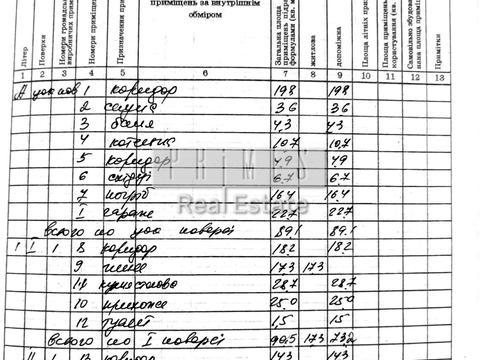 приміщень за внутрішнім
обміром
Літер
Поверхи
Номери приміщен
Призначення при
Загальна площа
приміщень
формулами (кв. м
житлова
допоміжна
Площа літніх при
Площа приміщень
користування (кв. м
Самовільно збудован
на площа приміщ
Примітки
1 2 3 4 5 6 7 8 9 10 11 12 13
А цок пов 1 коридор 19.8 19.8
2 сауна 3.6 3.6
3 баня 4,3 4,3
4 котельня 10.7 10,7
5 коридор 4.9 4.9
6 сходи 6.7 6.7
7 погріб 16.4 16.4
I гараж 22.7 22.7
всього по цок поверсі 89.1 89.1
I 1 8 коридор 18.2 18.2
9 17.3 17.3
11 28.7 28.7
10 прихожа 25.0 25.0
12 туалет 1,5 1.5
всього по I поверсі 90,5 17.3 73.2
II 1 13 коридор 14.3 14.3
PRIMES
Real Estate